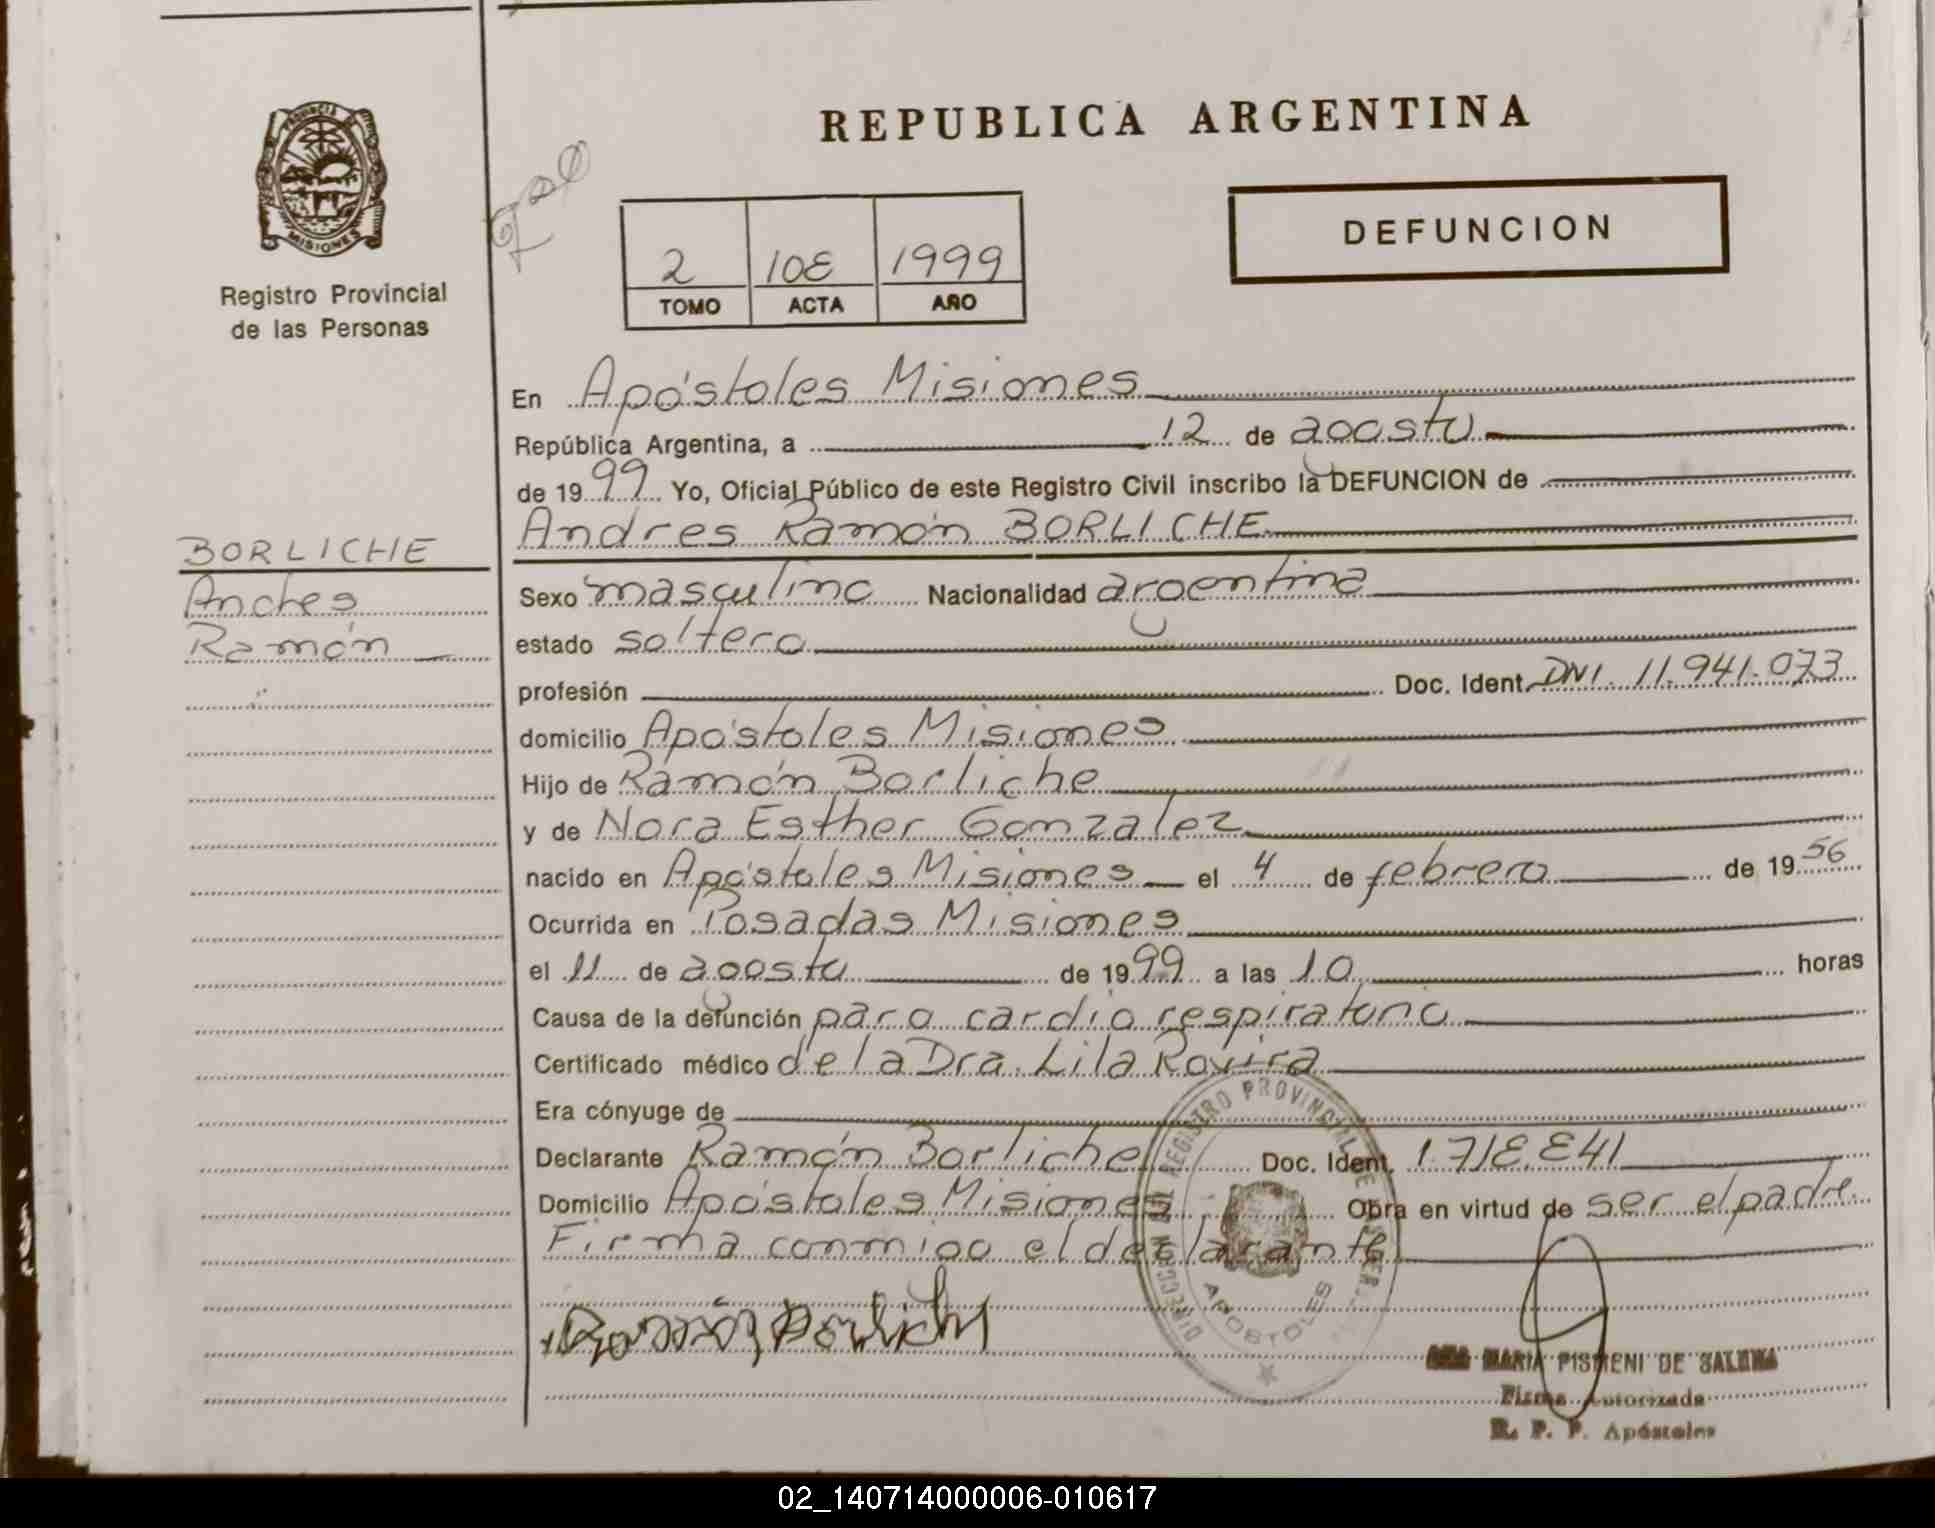 REPUBLICA ARGENTINA
PROVINCIA DE MISIONES
Registro Provincial
de las Personas
2 108 1999
TOMO ACTA AÑO
DEFUNCION
En Apóstoles Misiones
República Argentina, a 12 de agosto
de 1999 Yo, Oficial Público de este Registro Civil inscribo la DEFUNCION de
Andres Ramón BORLICHE
BORLICHE
Andres
Ramón
Sexo masculino Nacionalidad argentina
estado soltero
profesión Doc. Ident. DNI. 11.941.073
domicilio Apóstoles Misiones
Hijo de Ramón Borliche
y de Nora Esther Gonzalez
nacido en Apóstoles Misiones el 4 de febrero de 1956
Ocurrida en Posadas Misiones
el 11 de agosto de 1999 a las 10 horas
Causa de la defunción paro cardio respiratorio
Certificado médico de la Dra. Lila Rovira
Era cónyuge de
Declarante Ramón Borliche Doc. Ident. 1.718.841
Domicilio Apóstoles Misiones Obra en virtud de ser el padre.
Firma conmigo el declarante
Ramón Borliche
REGISTRO PROVINCIAL DE
APOSTOLES
MARIA PISMENI DE
Firma Autorizada
R. P. P. Apóstoles
02_140714000006-010617